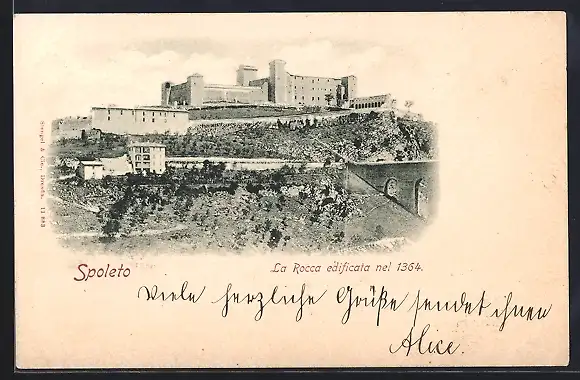 Stengel & Co., Dresda. 11 883
Spoleto
La Rocca edificata nel 1364.
Viele herzliche Grüße sendet ihnen
Alice.